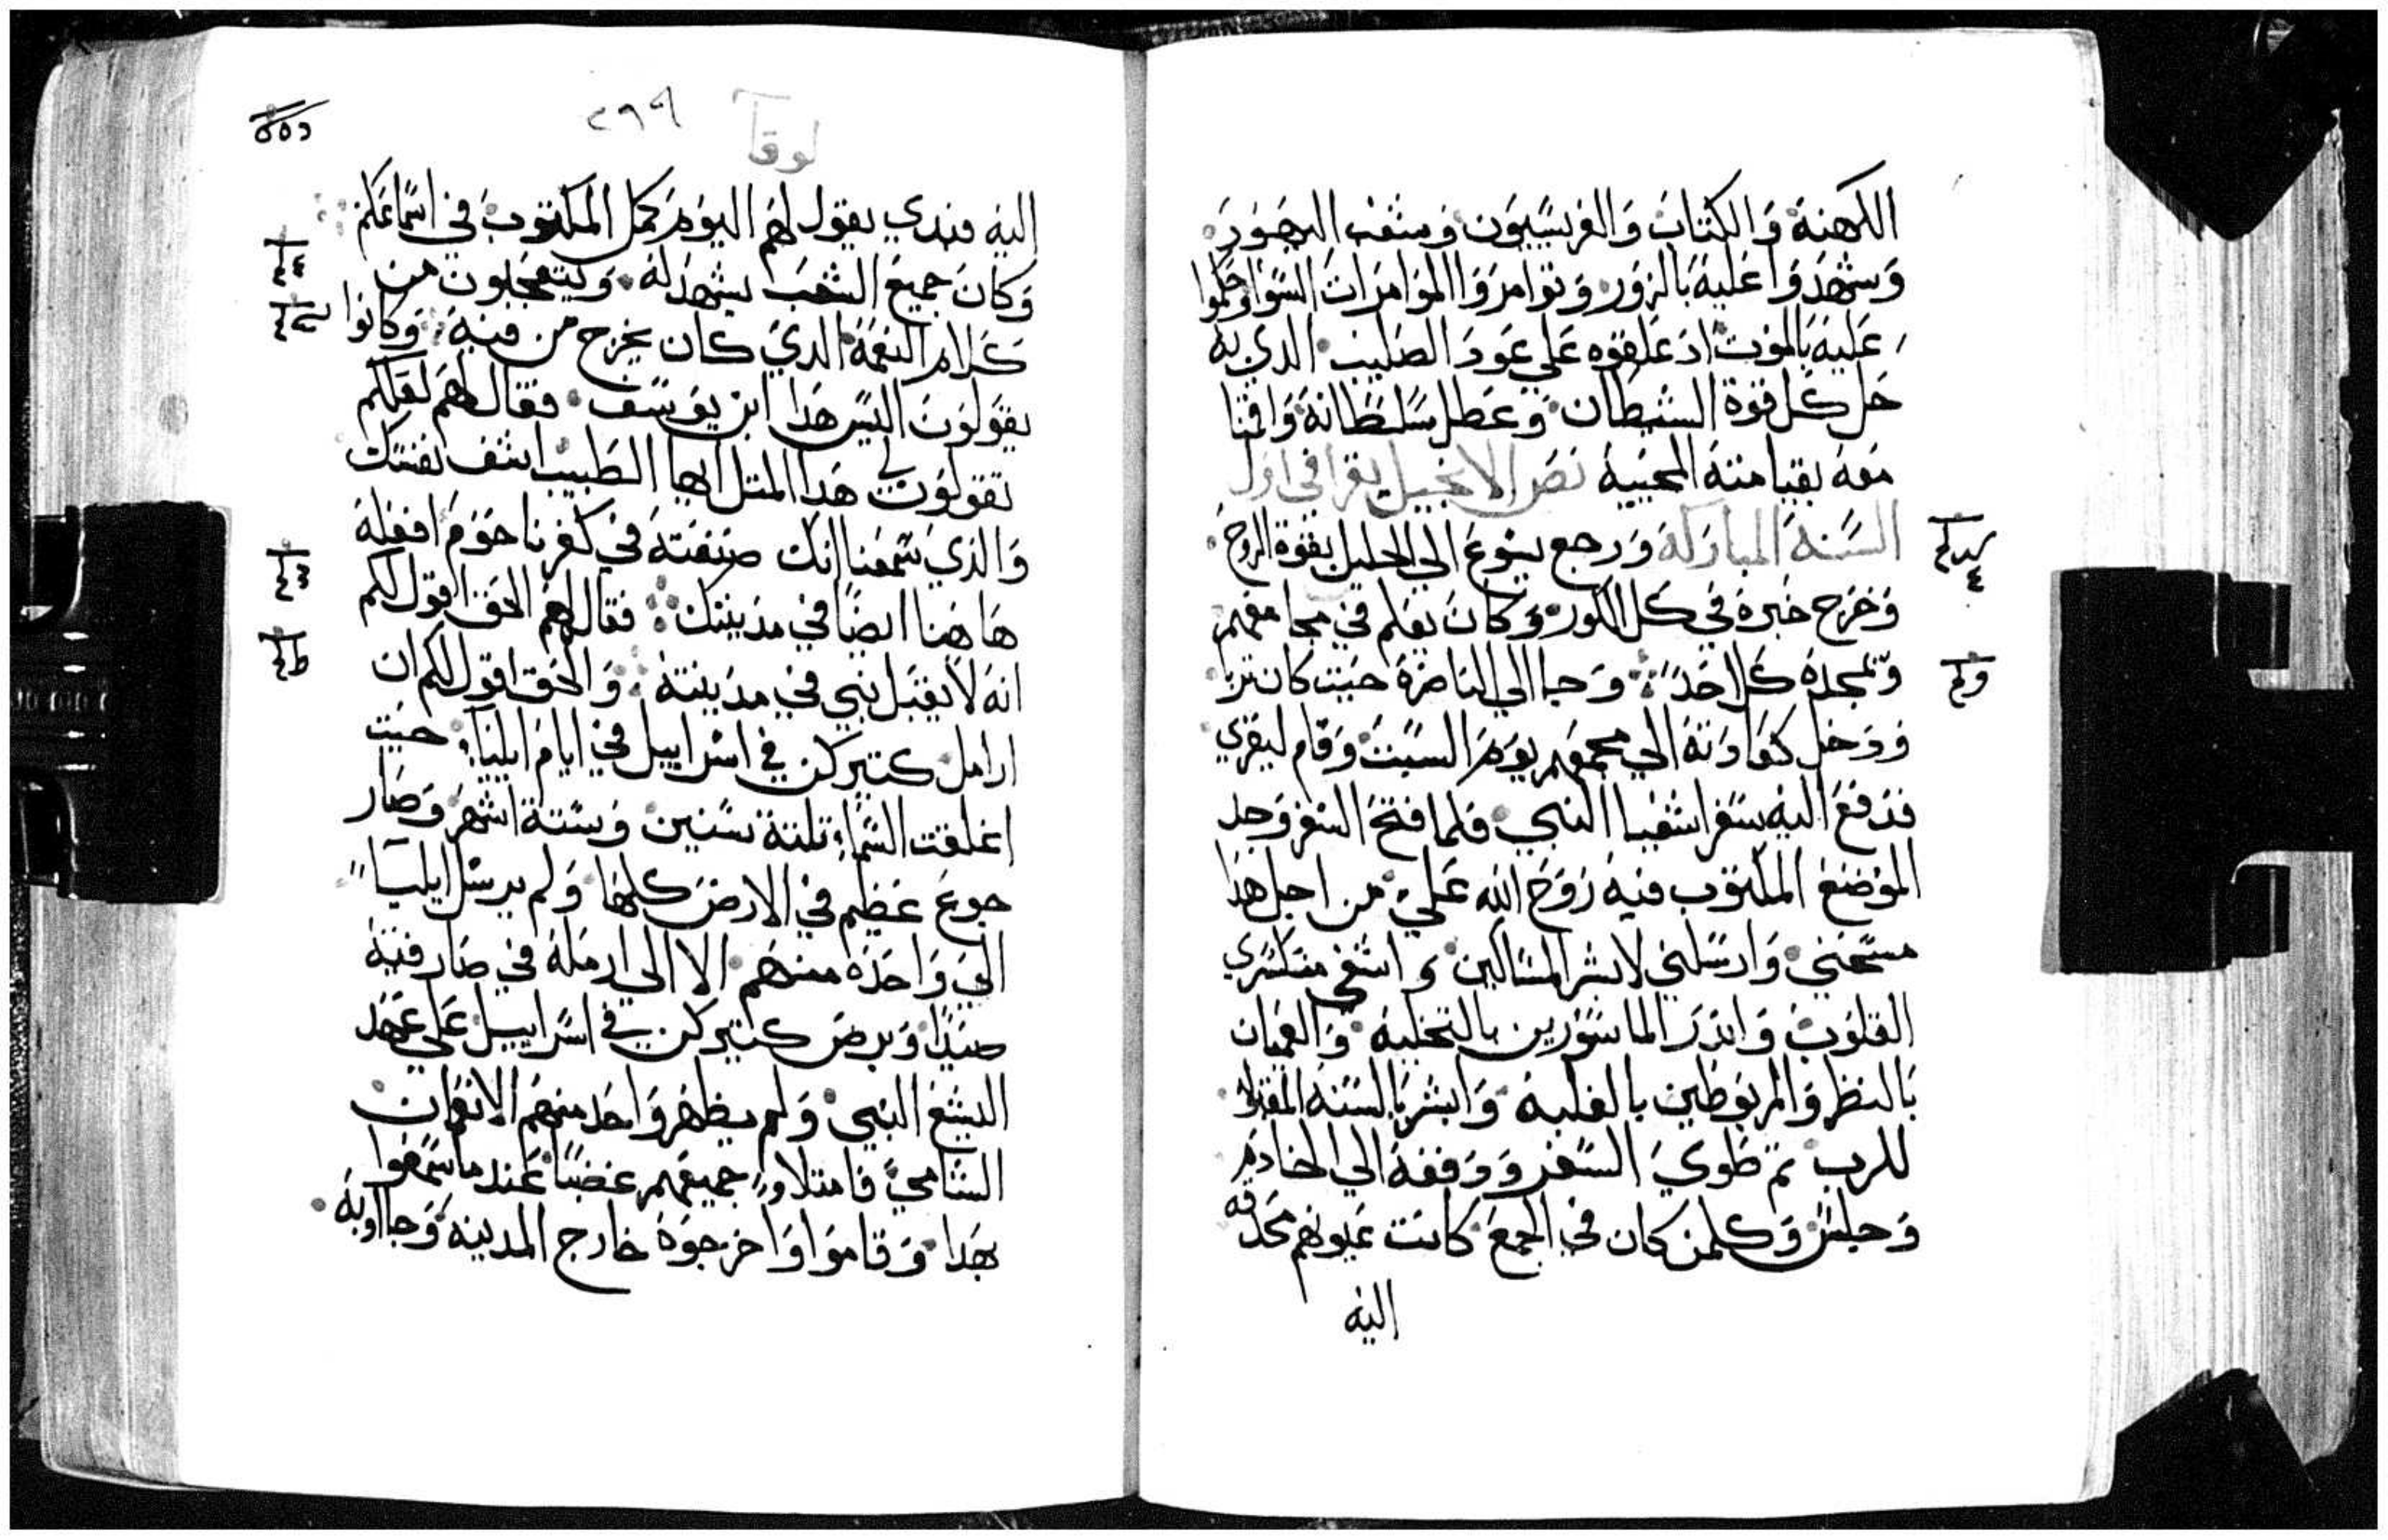 الكهنة والكتاب والفريسيون وشعب اليهود
وشهدوا عليه بالزور وتوامروا الموامرات السوا وحكموا
عليه بالموت اد علقوه علي عود الصليب الدي به
حل كل قوة الشيطان وعطل سلطانه واقمنا
معه بقيامته المحيية نص الانجيل يقرا في اول
السنة المباركة ورجع يسوع الي الجليل بقوة الروح
وخرج خبره في كل الكور وكان يعلم في مجامعهم
ويمجده كل احد وجا الي الناصرة حيت كان تربا
ودخل كعادته الي مجمعهم يوم السبت وقام ليقري
فدفع اليه سفر اشعيا النبي فلما فتح السفر وجد
الموضع المكتوب فيه روح الله علي من اجل هدا
مسحني وارسلني لابشر المساكين واشفي منكسري
القلوب واندر الماسورين بالتخلية والعميان
بالنظر والمربوطين بالغلبة وابشر بالسنة المقبولة
للرب تم طوي السفر ودفعه الي الخادم
وجلس وكلمن كان في الجمع كانت عيونهم محدقه
اليه
لوقا
٢٩٩
اليه فبدي يقول لهم اليوم كمل المكتوب في اسماعكم
وكان جميع الشعب يشهد له ويتعجبون من
كلام النعمة الدي كان يخرج من فيه وكانوا
يقولون اليس هدا ابن يوسف فقال لهم لعلكم
تقولون لي هدا المتل ايها الطبيب اشف نفسك
والذي سمعنا انك صنعته في كفرناحوم افعله
هاهنا ايضا في مدينتك فقال لهم الحق اقول لكم
انه لا يقبل نبي في مدينته والحق اقول لكم ان
ارامل كتير كن في اسراييل في ايام ايليا حيت
اغلقت السماء تلتة سنين وستة اشهر وصار
جوع عظيم في الارض كلها ولم يرسل ايليا
الي واحدة منهم الا الي ارملة في صارفية
صيدا وبرص كتير كن في اسراييل علي عهد
اليشع النبي ولم يطهر واحد منهم الا نعمان
الشامي فامتلاو جميعهم غضبا عند ما سمعوا
بهدا وقاموا واخرجوه خارج المدينة وجااوا به